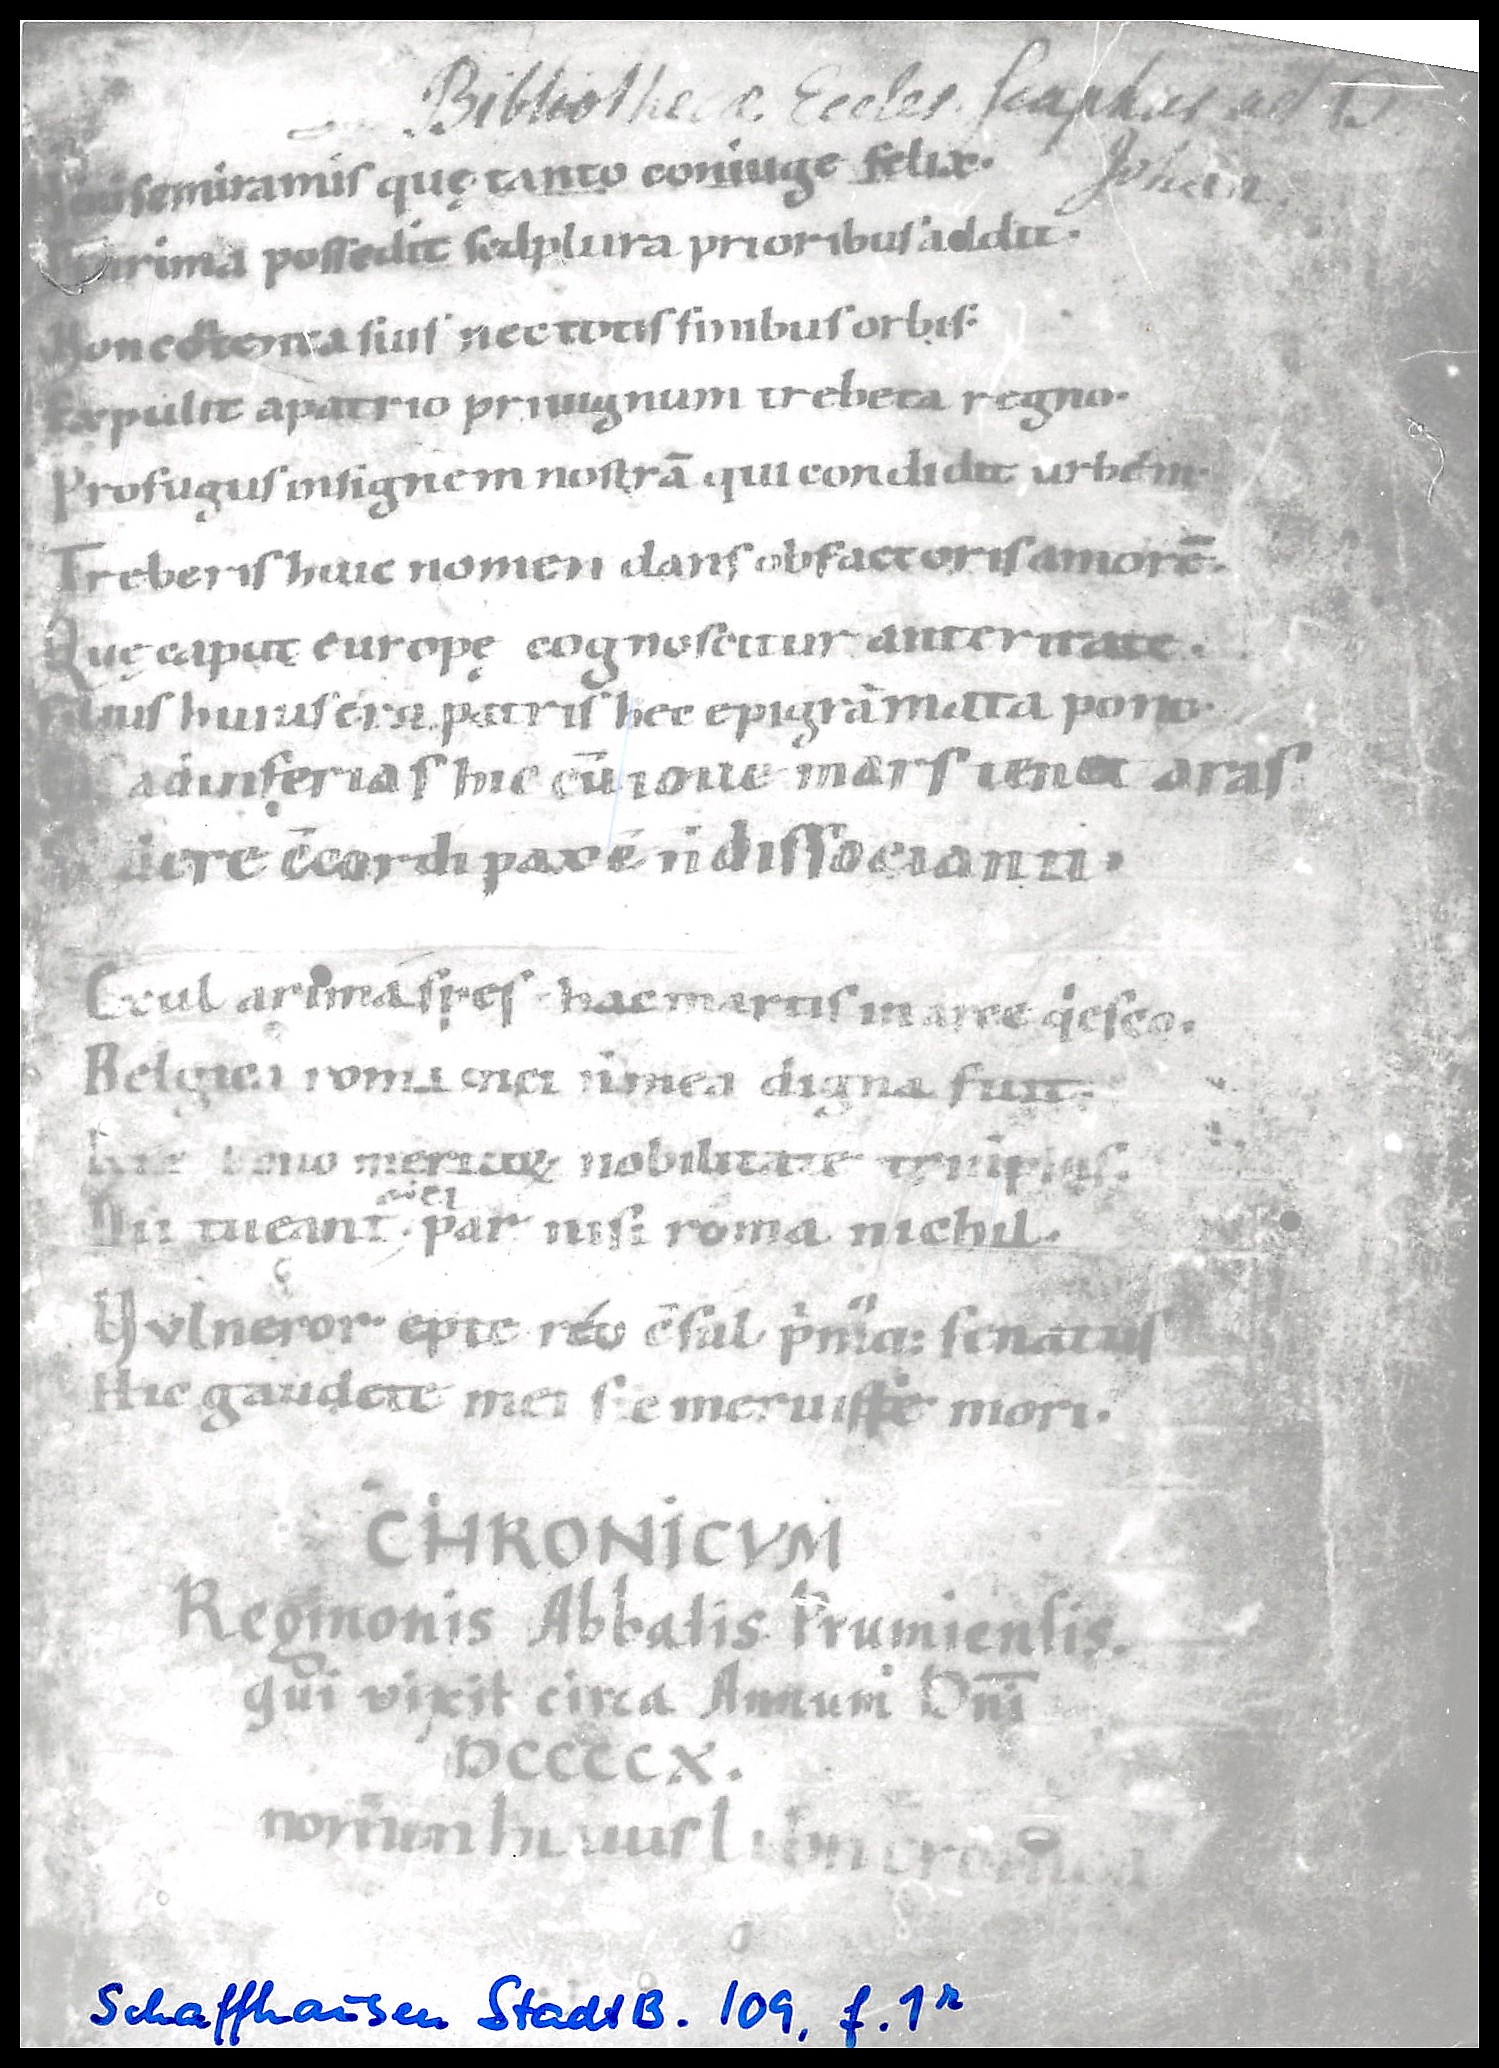 Bibliothecæ Eccles. Scaphus. ad S.
Johan.
semiramis quę tanto coniuge felix.
possedit sed plura prioribus addit.
Non contenta suis nec totis finibus orbis.
Expulit a patrio priuignum trebeta regno.
Profugus insignem nostrā qui condidit urbem.
Treberis huic nomen dans ob factoris amorē.
Quę caput europę cognoscitur anteritate.
filius huius era patris hec epigrāmata pono.
ad inferias hic cū ioue mars tenet aras
pax ē n̄ dissociani.
Exul hac martis in arce q̍esco.
Belgica digna fuit.
nobilitate
Dii tueant par nisi roma nichil.
Vulneror
Hic gaudete mei sic meruisse mori.
CHRONICVM
Reginonis Abbatis Prumiensis.
qui vixit circa Annum Dn̄i
DCCCCX.
nomen huius libri cronica
Schaffhausen StadtB. 109, f. 1r